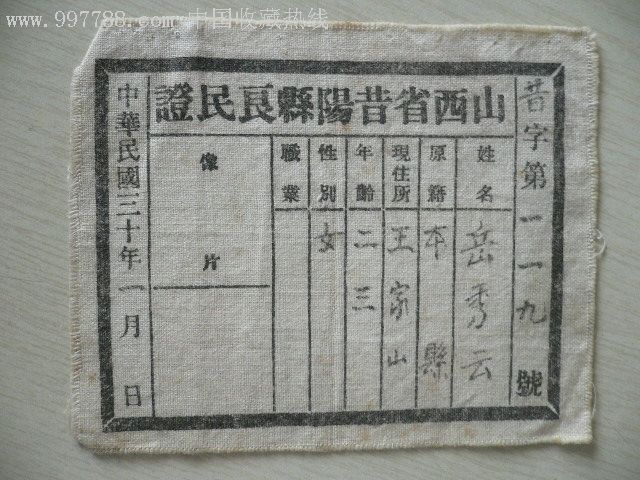 www.997788.com 中国收藏热线
山西省昔陽縣良民證
昔字第一一九號
姓名 岳秀云
原籍 本縣
現住所 王家山
年齡 二三
性別 女
職業
像片
中華民國三十年一月 日